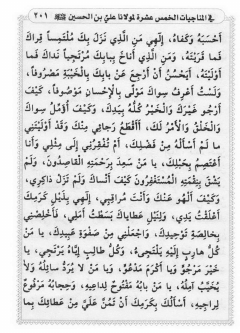 في المناجيات الخمس عشرة لمولانا علي بن الحسين ﷺ ٢٠١
أَحْسَبَهُ وَكَفَاهُ، إِلَهِي مَنِ الَّذِي نَزَلَ بِكَ مُلْتَمِساً قِرَاكَ
فَمَا قَرَيْتَهُ، وَمَنِ الَّذِي أَنَاخَ بِبَابِكَ مُرْتَجِياً نَدَاكَ فَمَا
أَوْلَيْتَهُ، أَيَحْسُنُ أَنْ أَرْجِعَ عَنْ بَابِكَ بِالْخَيْبَةِ مَصْرُوفاً،
وَلَسْتُ أَعْرِفُ سِوَاكَ مَوْلًى بِالْإِحْسَانِ مَوْصُوفاً، كَيْفَ
أَرْجُو غَيْرَكَ وَالْخَيْرُ كُلُّهُ بِيَدِكَ، وَكَيْفَ أُؤَمِّلُ سِوَاكَ
وَالْخَلْقُ وَالْأَمْرُ لَكَ، أَأَقْطَعُ رَجَائِي مِنْكَ وَقَدْ أَوْلَيْتَنِي
مَا لَمْ أَسْأَلْهُ مِنْ فَضْلِكَ، أَمْ تُفْقِرُنِي إِلَى مِثْلِي وَأَنَا
أَعْتَصِمُ بِحَبْلِكَ، يَا مَنْ سَعِدَ بِرَحْمَتِهِ الْقَاصِدُونَ، وَلَمْ
يَشْقَ بِنِقْمَتِهِ الْمُسْتَغْفِرُونَ كَيْفَ أَنْسَاكَ وَلَمْ تَزَلْ ذَاكِرِي،
وَكَيْفَ أَلْهُو عَنْكَ وَأَنْتَ مُرَاقِبِي، إِلَهِي بِذَيْلِ كَرَمِكَ
أَعْلَقْتُ يَدِي، وَلِنَيْلِ عَطَايَاكَ بَسَطْتُ أَمَلِي، فَأَخْلِصْنِي
بِخَالِصَةِ تَوْحِيدِكَ، وَاجْعَلْنِي مِنْ صَفْوَةِ عَبِيدِكَ، يَا مَنْ
كُلُّ هَارِبٍ إِلَيْهِ يَلْتَجِئُ، وَكُلُّ طَالِبٍ إِيَّاهُ يَرْتَجِي، يَا
خَيْرَ مَرْجُوٍّ وَيَا أَكْرَمَ مَدْعُوٍّ، وَيَا مَنْ لَا يُرَدُّ سَائِلُهُ وَلَا
يُخَيَّبُ آمِلُهُ، يَا مَنْ بَابُهُ مَفْتُوحٌ لِدَاعِيهِ، وَحِجَابُهُ مَرْفُوعٌ
لِرَاجِيهِ، أَسْأَلُكَ بِكَرَمِكَ أَنْ تَمُنَّ عَلَيَّ مِنْ عَطَائِكَ بِمَا